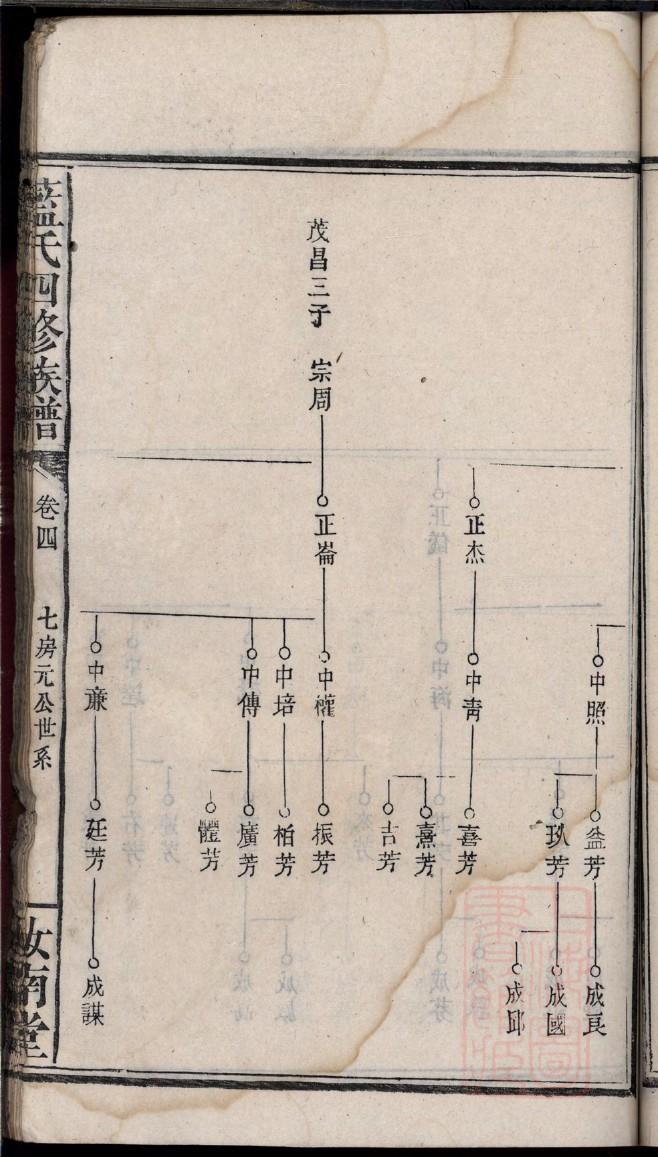 茂昌三子 宗周
正杰
正崙
中照
中靑
中權
中培
中傳
中亷
益芳
玖芳
喜芳
熹芳
吉芳
振芳
栢芳
廣芳
體芳
廷芳
成良
成國
成邱
成謀
藍氏四修族譜
卷四
七房元公世系
汝南堂